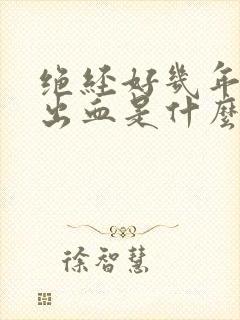 绝经好幾年
出血是什麽
徐智慧